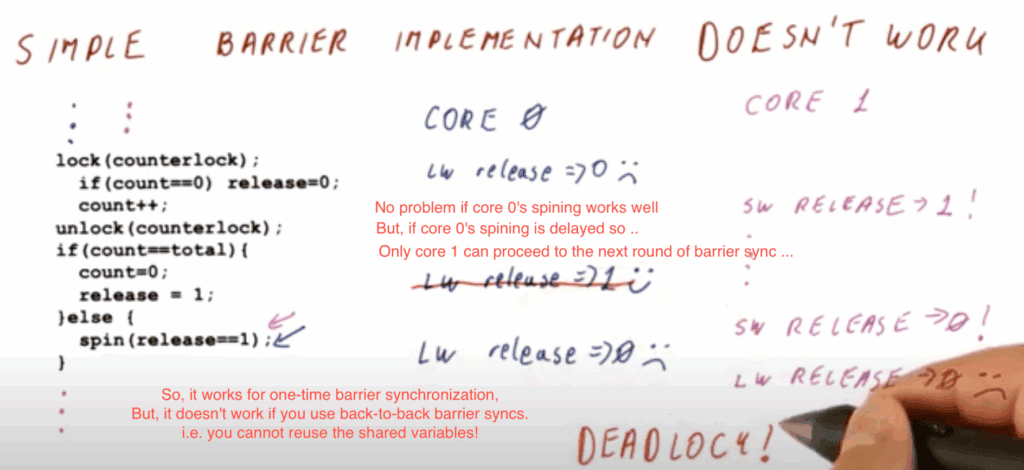 SIMPLE BARRIER IMPLEMENTATION DOESN'T WORK
lock(counterlock);
if(count==0) release=0;
count++;
unlock(counterlock);
if(count==total){
count=0;
release = 1;
}else {
spin(release==1);
}
CORE 0
LW release =>0
No problem if core 0's spining works well
But, if core 0's spining is delayed so ..
Only core 1 can proceed to the next round of barrier sync ...
LW release =>1
LW release =>0
CORE 1
SW RELEASE->1!
SW RELEASE->0!
LW RELEASE->0
So, it works for one-time barrier synchronization,
But, it doesn't work if you use back-to-back barrier syncs.
i.e. you cannot reuse the shared variables!
DEADLOCK!